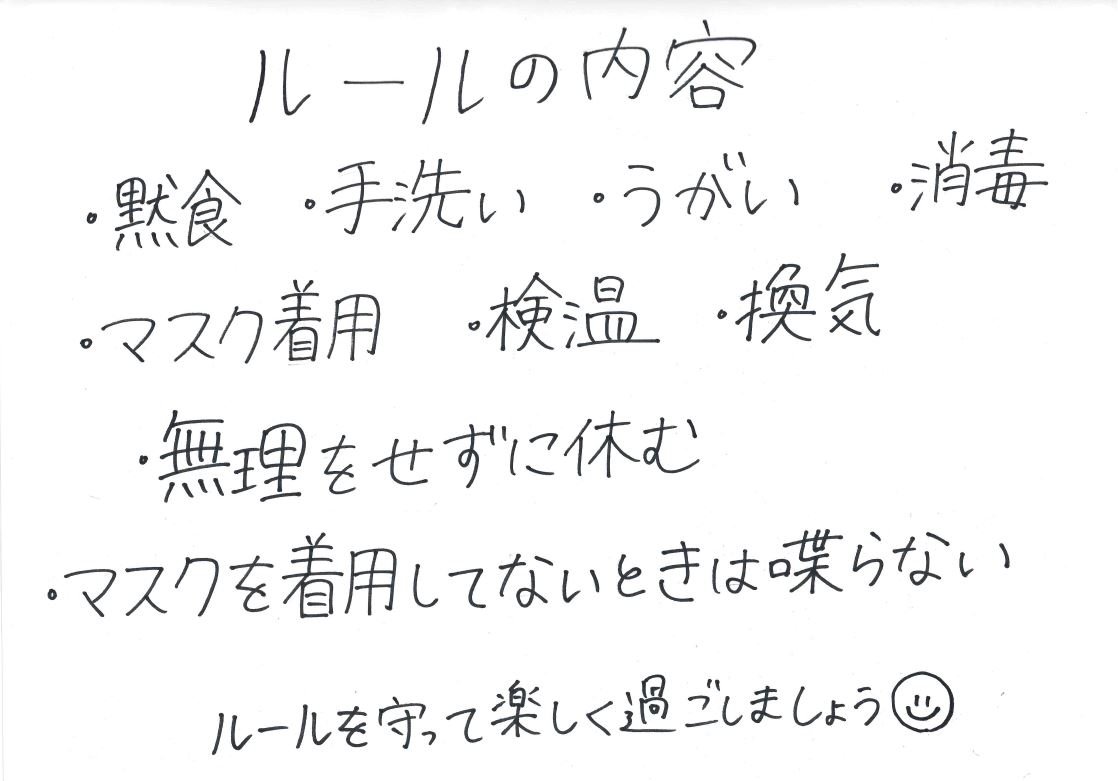 ルールの内容
・黙食 ・手洗い ・うがい ・消毒
・マスク着用 ・検温 ・換気
・無理をせずに休む
・マスクを着用してないときは喋らない
ルールを守って楽しく過ごしましょう☺